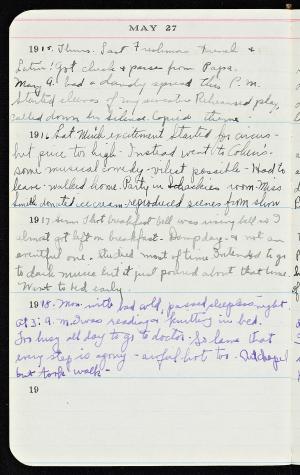 MAY 27
1915. Thurs. Last Freshman French &
Latin! Got check & passes from Papa.
Mary G. had a dandy spread this P.M.
Started sleeves of my sweater. Rehearsed play,
called down for silence. Copied theme.
1916. Sat. Much excitement. Started for circus -
but price too high. Instead went to Cohen's.
some musical comedy - vilest possible - Had to
leave - walked home. Party in room - Miss
Smith donated ice cream - reproduced scenes from show
1917 Sun. That breakfast bell was rung but as I
almost got left on breakfast - Damp day - & not an
eventful one. Studied most of time. Intended to go
to dark music but it just poured about that time.
Went to bed early.
1918. Mon. with bad cold, passed sleepless night.
At 3: a.m. I was reading & knitting in bed.
Too busy all day to go to doctor. So lame that
every step is agony - awful hot too.
but took walk -
19